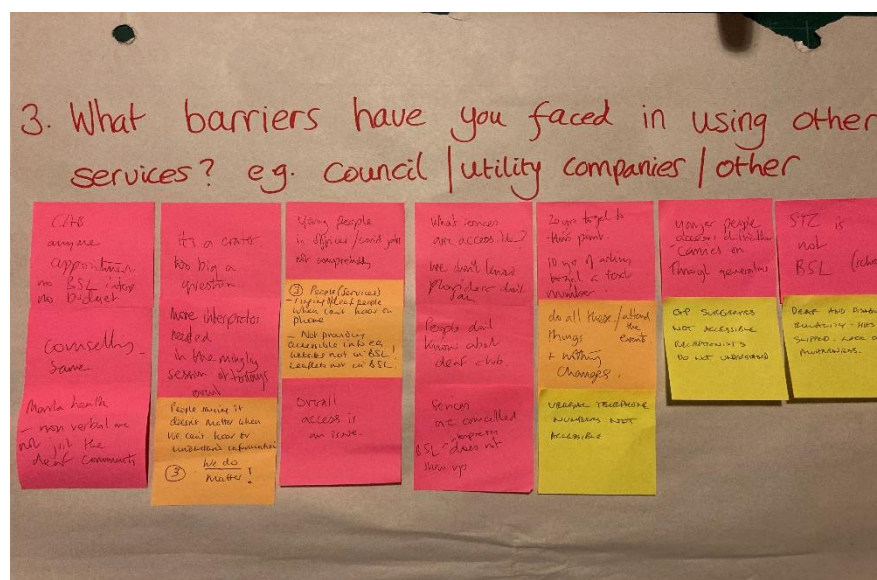 3. What barriers have you faced in using other
services? eg. council / utility companies / other
CAB
anyone
appointment
no BSL interp
no budget
counselling
same
Mental health
- non verbal are
not just the
deaf community
it's a crater.
too big a
question
More interpreters
needed
in the mingling
session at
event
People saying it
doesn't matter when
we can't hear or
understand information
3 We do
matter!
Young people
in offices / covid job
not
3 People (services)
- ringing deaf people
when can't hear on
phone
- Not providing
accessible info eg
websites not in BSL!
Leaflets not in BSL.
Overall
access is
an issue.
What services
are accessible?
We don't know
providers don't
People don't
know about
deaf club
Services
are cancelled
BSL interpreter does not
show up
20 yrs to get to
this point.
10 yrs of asking
to get a text
number
do all these / attend
things the events
+ nothing
changes.
VERBAL TELEPHONE
NUMBERS NOT
ACCESSIBLE
younger people
access
- carries on
through generations
GP SURGERIES
NOT ACCESSIBLE
RECEPTIONISTS
DO NOT UNDERSTAND
is
not
BSL
DEAF AND
- HAS
SLIPPED. LACK OF